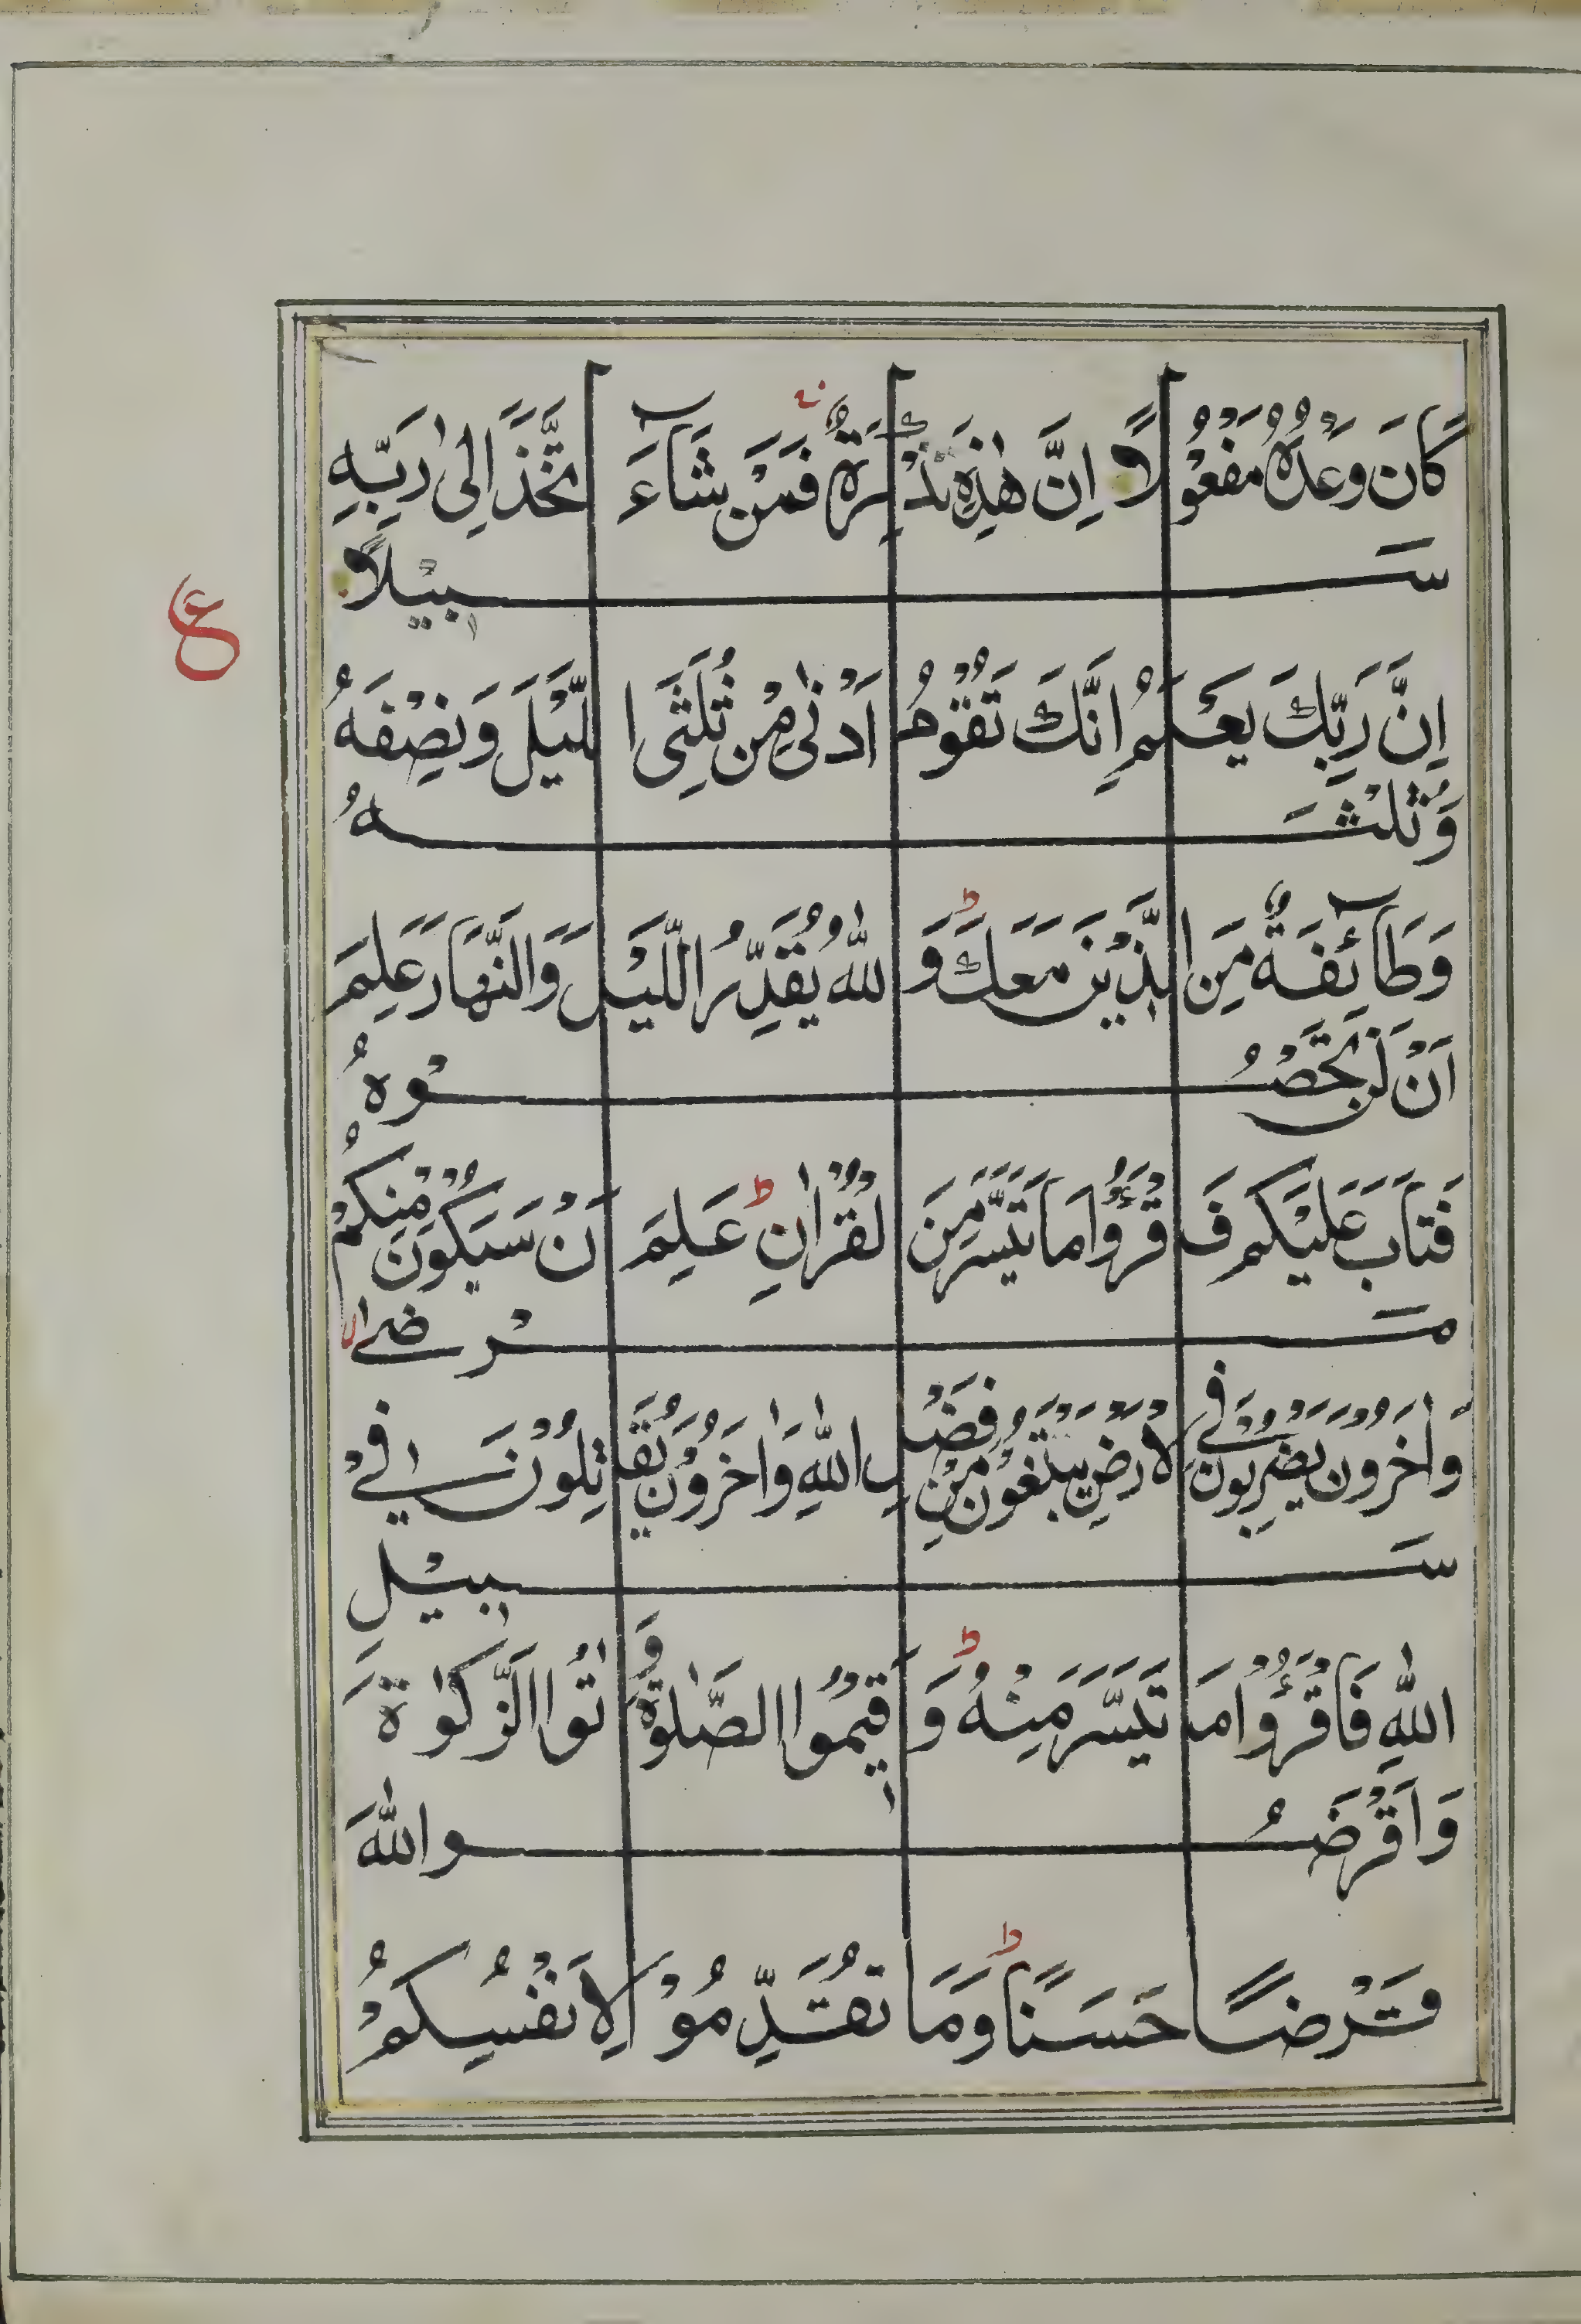 كَانَ وَعْدُهُ مَفْعُوْلًا اِنَّ هٰذِهٖ تَذْكِرَةٌ فَمَنْ شَآءَ اتَّخَذَ اِلٰى رَبِّهٖ
سَبِيْلًا
ع
اِنَّ رَبَّكَ يَعْلَمُ اِنَّكَ تَقُوْمُ اَدْنٰى مِنْ ثُلُثَىِ الَّيْلِ وَنِصْفَهُ
وَثُلُثَهُ
وَطَآئِفَةٌ مِنَ الَّذِيْنَ مَعَكَ ط وَاللّٰهُ يُقَدِّرُ اللَّيْلَ وَالنَّهَارَ عَلِمَ
اَنْ لَنْ تُحْصُوْهُ
فَتَابَ عَلَيْكُمْ فَاقْرَؤُا مَا تَيَسَّرَ مِنَ الْقُرْاٰنِ ط عَلِمَ اَنْ سَيَكُوْنُ مِنْكُمْ
مَرْضٰى لا
وَاٰخَرُوْنَ يَضْرِبُوْنَ فِى الْاَرْضِ يَبْتَغُوْنَ مِنْ فَضْلِ اللّٰهِ وَاٰخَرُوْنَ يُقَاتِلُوْنَ فِيْ
سَبِيْلِ
اللّٰهِ فَاقْرَؤُا مَا تَيَسَّرَ مِنْهُ ط وَاَقِيْمُوا الصَّلٰوةَ وَاٰتُوا الزَّكٰوةَ
وَاَقْرِضُوا اللّٰهَ
قَرْضًا حَسَنًا ط وَمَا تُقَدِّمُوْا لِاَنْفُسِكُمْ